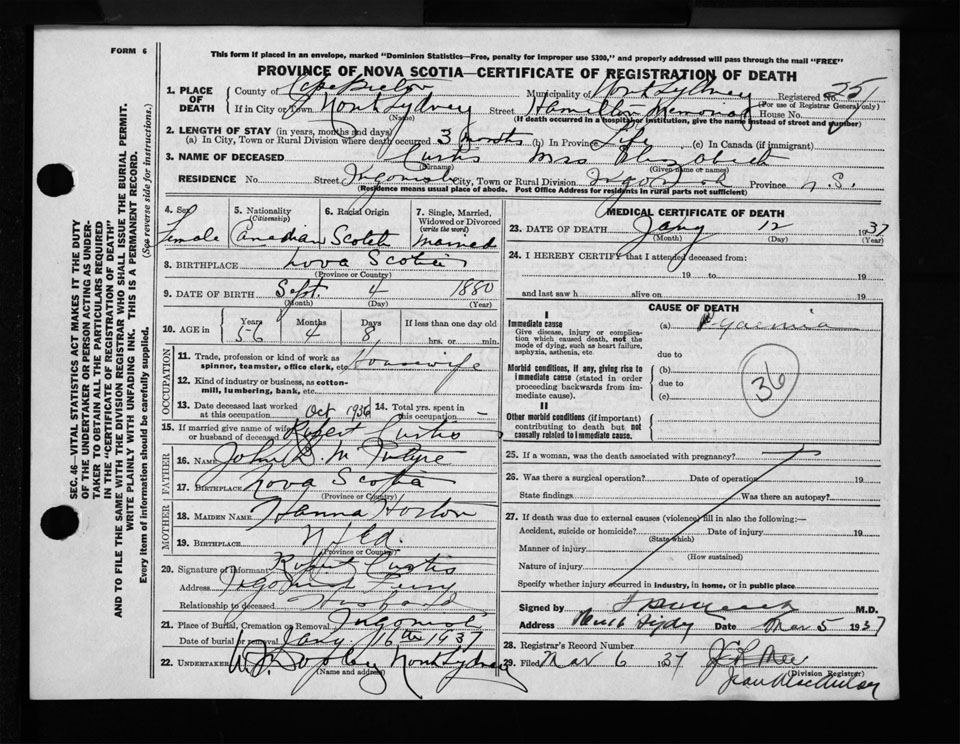 FORM 6
This form if placed in an envelope, marked "Dominion Statistics—Free, penalty for improper use $300," and properly addressed will pass through the mail "FREE"
PROVINCE OF NOVA SCOTIA—CERTIFICATE OF REGISTRATION OF DEATH
SEC. 46—VITAL STATISTICS ACT MAKES IT THE DUTY
OF THE UNDERTAKER OR PERSON ACTING AS UNDER-
TAKER TO OBTAIN ALL THE PARTICULARS REQUIRED
IN THE "CERTIFICATE OF REGISTRATION OF DEATH"
AND TO FILE THE SAME WITH THE DIVISION REGISTRAR WHO SHALL ISSUE THE BURIAL PERMIT.
WRITE PLAINLY WITH UNFADING INK. THIS IS A PERMANENT RECORD.
Every item of information should be carefully supplied. (See reverse side for instructions.)
1. PLACE OF DEATH
County of Cape Breton Municipality of North Sydney Registered No. 251
(For use of Registrar General only)
If in City or Town North Sydney Street Hamilton Memorial House No.
(Name)
(If death occurred in a hospital or institution, give the name instead of street and number)
2. LENGTH OF STAY (in years, months and days)
(a) In City, Town or Rural Division where death occurred 3 months (b) In Province Life (c) In Canada (if immigrant)
3. NAME OF DECEASED Curtis Mrs Elizabeth
(Surname) (Given name or names)
RESIDENCE No. Street Ingonish City, Town or Rural Division Ingonish Province N.S.
(Residence means usual place of abode. Post Office Address for residents in rural parts not sufficient)
4. Sex Female
5. Nationality (Citizenship) Canadian
6. Racial Origin Scotch
7. Single, Married, Widowed or Divorced (write the word) Married
8. BIRTHPLACE Nova Scotia
(Province or Country)
9. DATE OF BIRTH Sept. 4 1880
(Month) (Day) (Year)
10. AGE in Years 56 Months 4 Days 8 If less than one day old hrs. or min.
OCCUPATION
11. Trade, profession or kind of work as spinner, teamster, office clerk, etc. Housewife
12. Kind of industry or business, as cotton-mill, lumbering, bank, etc.
13. Date deceased last worked at this occupation Oct 1936
14. Total yrs. spent in this occupation
15. If married give name of wife or husband of deceased Robert Curtis
FATHER
16. Name John D. McIntyre
17. Birthplace Nova Scotia
(Province or Country)
MOTHER
18. Maiden Name Hanna Horton
19. Birthplace Nfld.
(Province or Country)
20. Signature of Informant Robert Curtis
Address Ingonish Ferry
Relationship to deceased Husband
21. Place of Burial, Cremation or Removal Ingonish
Date of burial or removal Jany 16th 1937
22. UNDERTAKER North Sydney
(Name and address)
MEDICAL CERTIFICATE OF DEATH
23. DATE OF DEATH Jany 12 1937
(Month) (Day) (Year)
24. I HEREBY CERTIFY that I attended deceased from:
19 to 19
and last saw h alive on 19
CAUSE OF DEATH
I
Immediate cause
Give disease, injury or complication which caused death, not the mode of dying, such as heart failure, asphyxia, asthenia, etc.
(a) Pyaemia
due to
Morbid conditions, if any, giving rise to immediate cause (stated in order proceeding backwards from immediate cause).
(b)
due to
(c)
36
II
Other morbid conditions (if important) contributing to death but not causally related to immediate cause.
25. If a woman, was the death associated with pregnancy?
26. Was there a surgical operation? Date of operation 19
State findings Was there an autopsy?
27. If death was due to external causes (violence) fill in also the following:—
Accident, suicide or homicide? Date of injury 19
(State which)
Manner of injury
(How sustained)
Nature of injury
Specify whether injury occurred in industry, in home, or in public place
Signed by M.D.
Address Date Mar 5 1937
28. Registrar's Record Number
29. Filed Mar 6 1937
(Division Registrar)